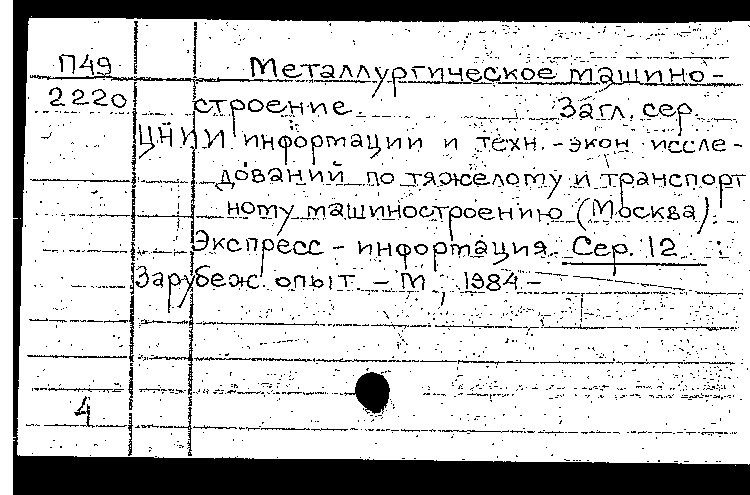 П49 Металлургическое машино-
2220 строение. Загл. сер.
ЦНИИ информации и техн.-экон. иссле-
дований по тяжелому и транспорт
ному машиностроению (Москва).
Экспресс - информация. Сер. 12 :
Зарубеж. опыт. - М., 1984 -
4